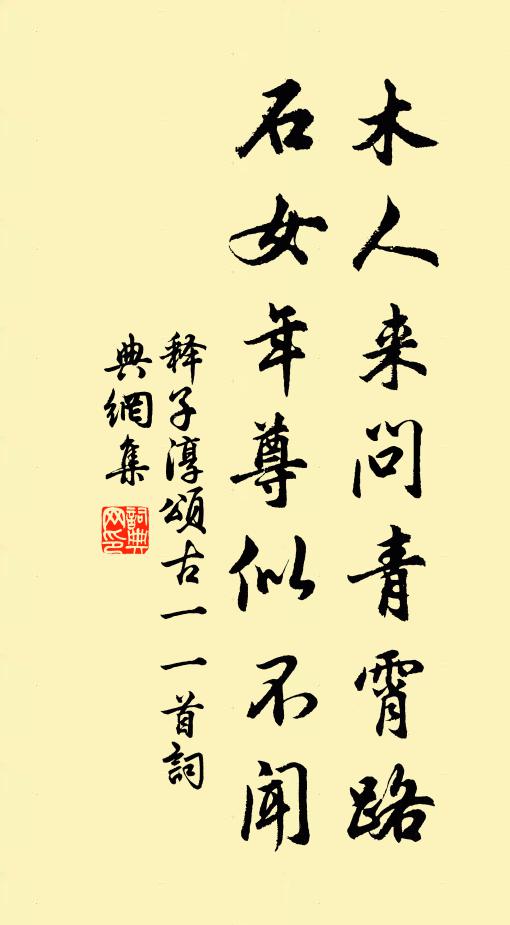 木人来问青霄路
石女年尊似不闻
释子淳颂古一一首詞
典網集
詞典網印